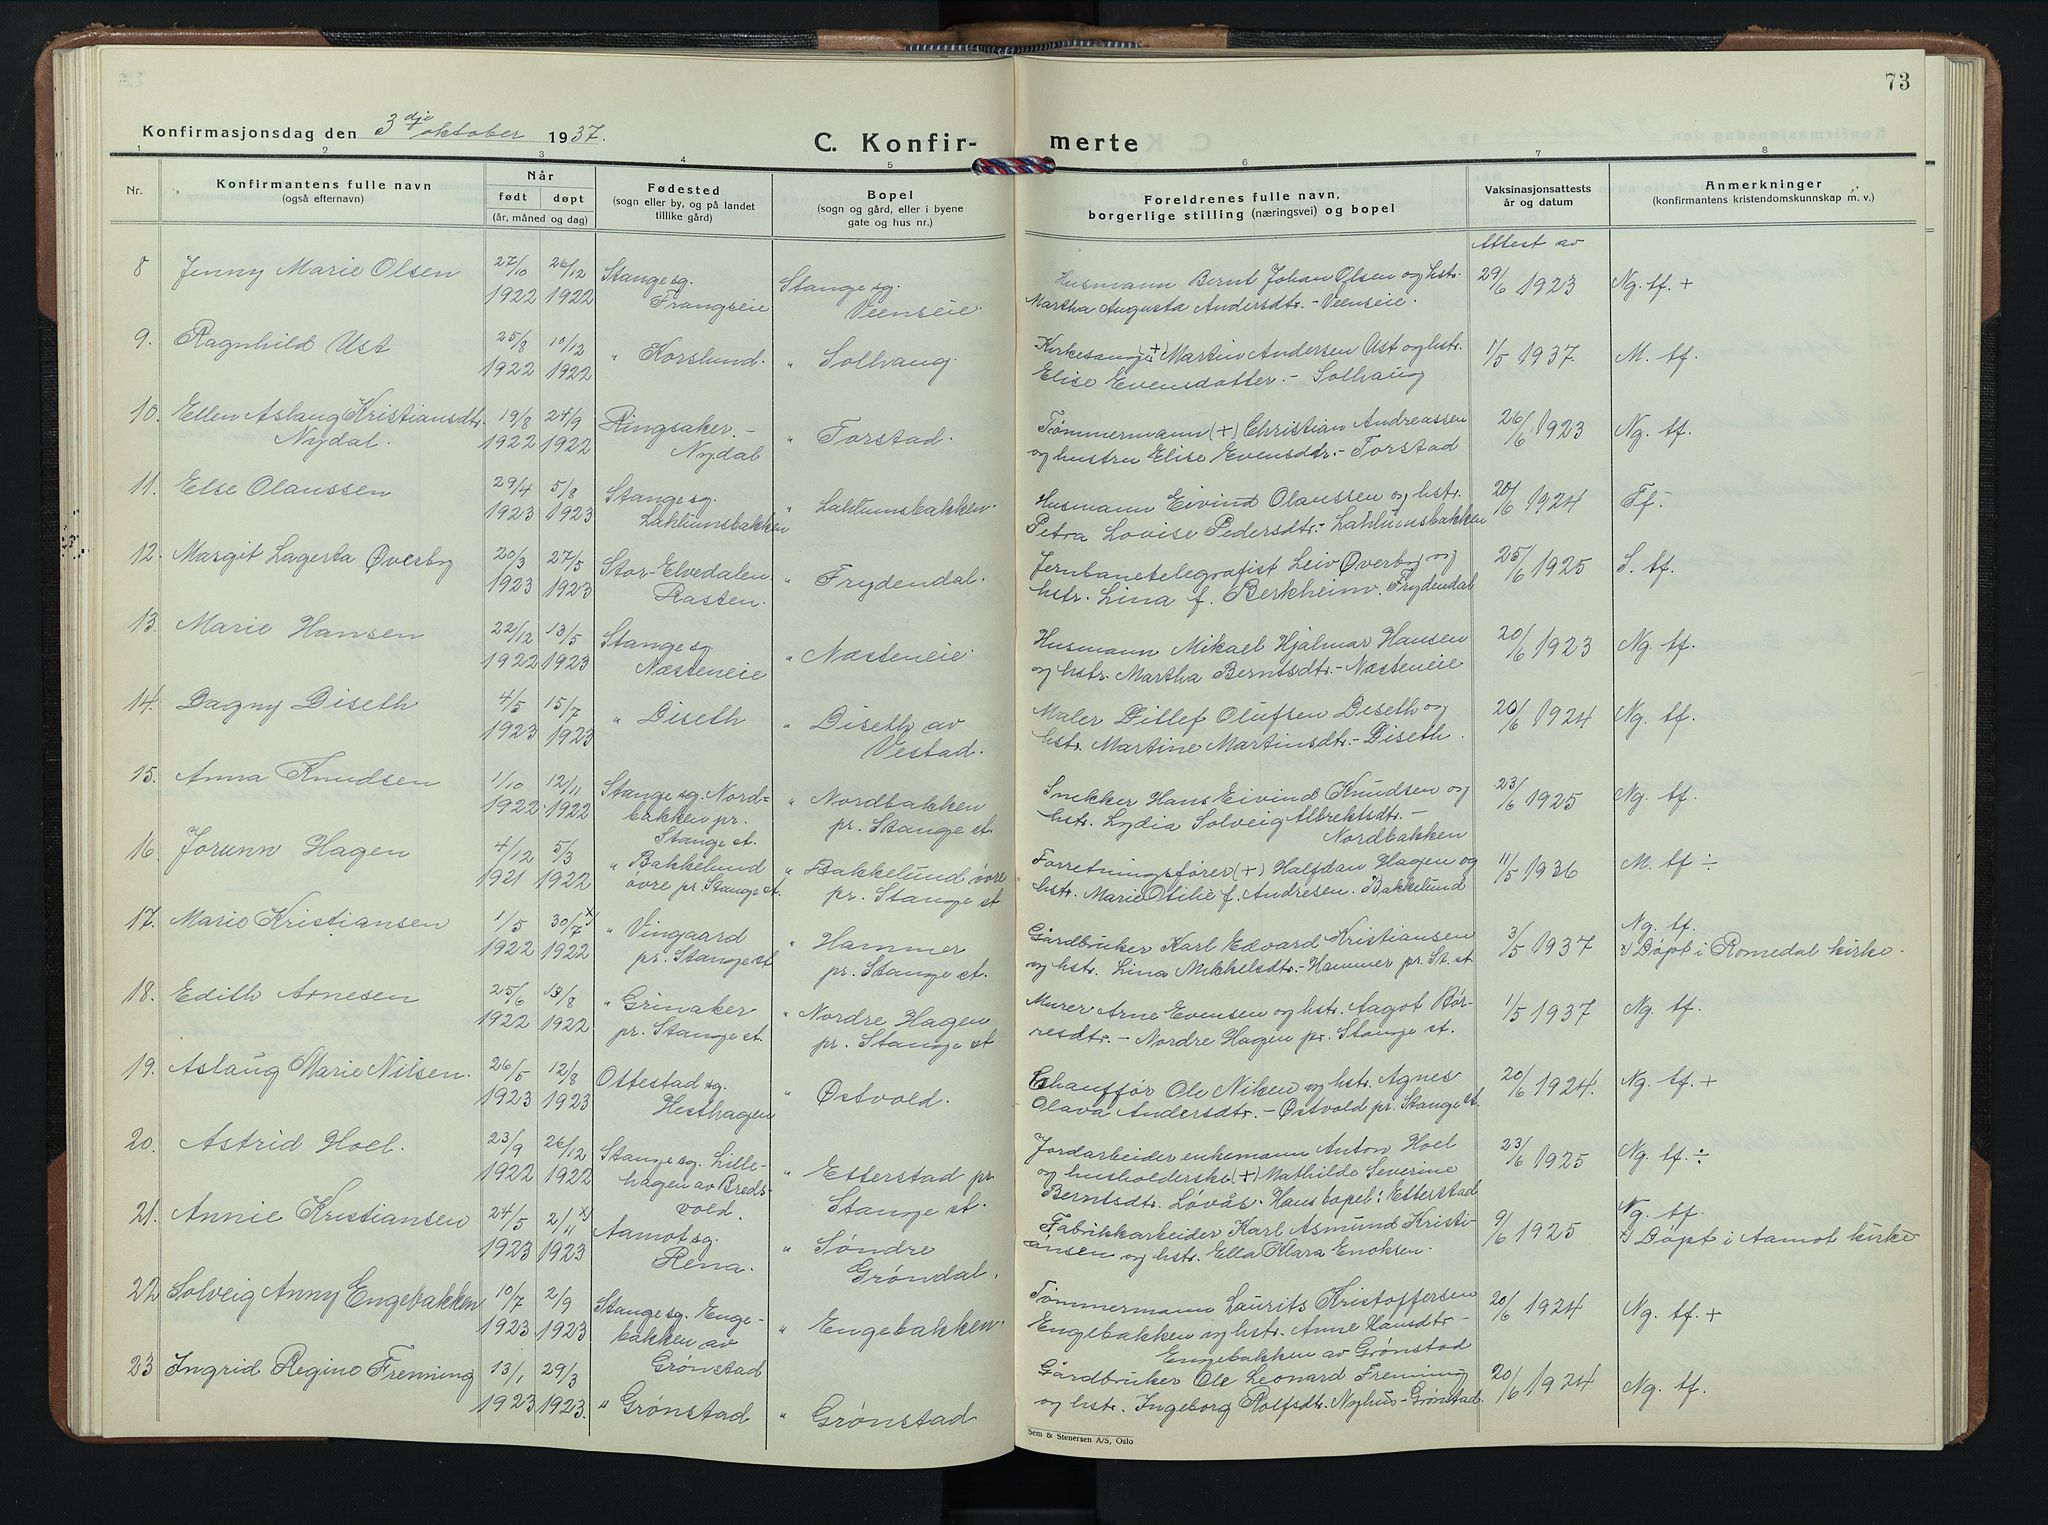 73
Konfirmasjonsdag den 3dje oktober 1937.
C. Konfir-merte
1 2 3 4 5 6 7 8
Nr.
Konfirmantens fulle navn
(også efternavn)
Når
født døpt
(år, måned og dag)
Fødested
(sogn eller by, og på landet
tillike gård)
Bopel
(sogn og gård, eller i byene
gate og hus nr.)
Foreldrenes fulle navn,
borgerlige stilling (næringsvei) og bopel
Vaksinasjonsattests
år og datum
Anmerkninger
(konfirmantens kristendomskunnskap m. v.)
Attest av
8 Jenny Marie Olsen 27/10 26/12 Stange sg. Stange sg. Husmann Bernt Johan Olsen og hst. 29/6 1923 Ng. tf. +
1922 1922 Frangseie Veenseie. Martha Augusta Andersdtr. - Veenseie.
9. Ragnhild Ust 25/8 10/12 " Korslund. " Solhaug. Kirkesanger (+) Martin Andersen Ust og hstr. 1/5 1937. M. tf.
1922 1922 Elise Evensdatter. - Solhaug
10. Ellen Aslaug Kristiansdtr. 19/8 24/9 Ringsaker. - " Torstad. Tømmermann (+) Christian Andreassen 26/6 1923 Ng. tf.
Nydal. 1922 1922 Nydal og hustru Elise Evensdtr. - Torstad
11. Else Olaussen 29/4 5/8 Stange sg. " Lahlumsbakken. Husmann Eivind Olaussen og hstr. 20/6 1924 Tf-
1923 1923 Lahlumsbakken Petra Lovise Pedersdtr. - Lahlumsbakken
12. Margit Lagerta Øverby 20/3 27/5 Stor-Elvedalen. " Frydendal. Jernbanetelegrafist Leiv Øverby og 25/6 1925 S. tf.
1923 1923 Rasten. hstr. Lina f. Berkheim. Frydendal
13. Marie Hansen 22/12 13/5 Stange sg. " Næsteneie. Husmann Mikael Hjalmar Hansen 20/6 1923 Ng. tf.
1922 1923 Næsteneie og hstr. Martha Berntsdtr. - Næsteneie
14. Dagny Diseth 4/5 15/7 " Diseth " Diseth av Maler Ditlef Olufsen Diseth og 20/6 1924 Ng. tf.
1923 1923 Vestad. hstr. Martine Martinsdtr. - Diseth.
15. Anna Knudsen 1/10 12/11 Stange sg. Nord= " Nordbakken Snekker Hans Eivind Knudsen og 23/6 1925 Ng. tf.
1922. 1922 bakken pr. pr. Stange st. hstr. Lydia Solveig Albrektsdtr. -
Stange st. Nordbakken
16. Jorunn Hagen 4/12 5/3 " Bakkelund " Bakkelund øvre Forretningsfører (+) Halfdan Hagen og 11/5 1936 M. tf ÷
1921 1922 øvre pr. Stange st. pr. Stange st hstr. Marie Otilie f. Andresen. Bakkelund
17. Marie Kristiansen 1/5 30/7 x) " Vingaard " Hammer Gårdbruker Karl Edvard Kristiansen 3/5 1937 Ng. tf.
1922 1922 pr. Stange st pr. Stange st. og hstr. Lina Mikkelsdtr. - Hammer pr. St. st x) Døpt i Romedal kirke.
18. Edith Arnesen 25/6 13/8 " Grinaker " Nordre Hagen Murer Arne Evensen og hstr. Aagot Bør- 1/5 1937 Ng. tf.
1922 1922 pr. Stange st. pr. Stange st resdtr. - Nordre Hagen pr. Stange st.
19. Aslaug Marie Nilsen. 26/5 12/8 Ottestad sg. " Østvold. Chauffør Ole Nilsen og hstr. Agnes 20/6 1924. Ng. tf. +
1923 1923 Hesthagen Olava Andersdtr. - Østvold pr. Stange st.
20. Astrid Hoel. 23/9 26/12 Stange sg. Lille- " Etterstad pr. Jordarbeider enkemann Anton Hoel 23/6 1925 Ng. tf. ÷
1922 1922 hagen av Breds- Stange st. og husholderske (+) Mathilde Severine
vold. Berntsdtr. Løvås. Hans bopel: Etterstad
21. Annie Kristiansen 24/5 2/11 x) Aamot sg. " Søndre Fabrikkarbeider Karl Asmund Kristi- 9/6 1925 Ng. tf.
1923 1923 Rena. Grøndal. ansen og hstr. Ella Klara Enoksen. x) Døpt i Aamot kirke
22 Solveig Anny Engebakken 10/7 2/9 Stange sg. Enge- " Engebakken. Tømmermann Laurits Kristoffersen 20/6 1924 Ng. tf. +
1923 1923 bakken av Engebakken og hstr. Anne Hansdtr. -
Grønstad Engebakken av Grønstad
23 Ingrid Regine Frenning 13/1 29/3 " Grønstad " Grønstad Gårdbruker Ole Leonard Frenning 20/6 1924 Ng. tf.
1923 1923. og hstr. Ingeborg Rolfsdtr. Nyhus - Grønstad.
Sem & Stenersen A/S, Oslo